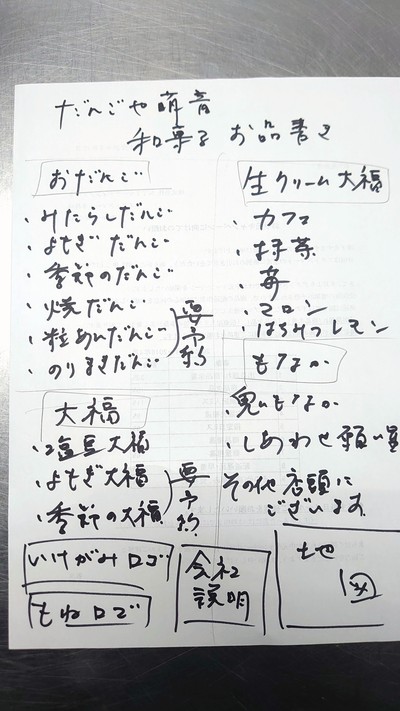 だんごや萌音
和菓子 お品書き
おだんご
・みたらしだんご
・よもぎ だんご
・季節のだんご
・焼だんご
・粒あんだんご
・のりまきだんご
要予約
大福
・塩豆大福
・よもぎ大福
・季節の大福
要予約
生クリーム大福
・カフェ
抹茶
・苺
・マロン
・はちみつレモン
もなか
・鬼もなか
・しあわせ願い
その他 店頭に
ございます
いけがみロゴ
もねロゴ
会社
説明
地
図